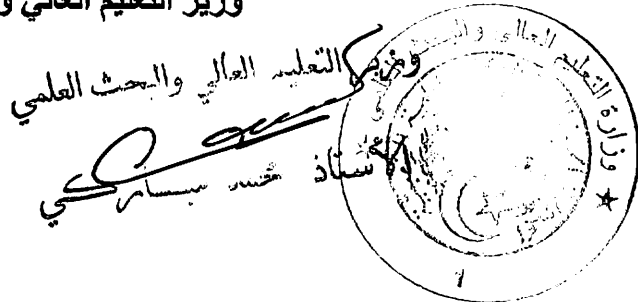 وزير التعليم العالي و
وزير التعليم العالي والبحث العلمي
الأستاذ محمد مباركي
وزارة التعليم العالي والبحث العلمي